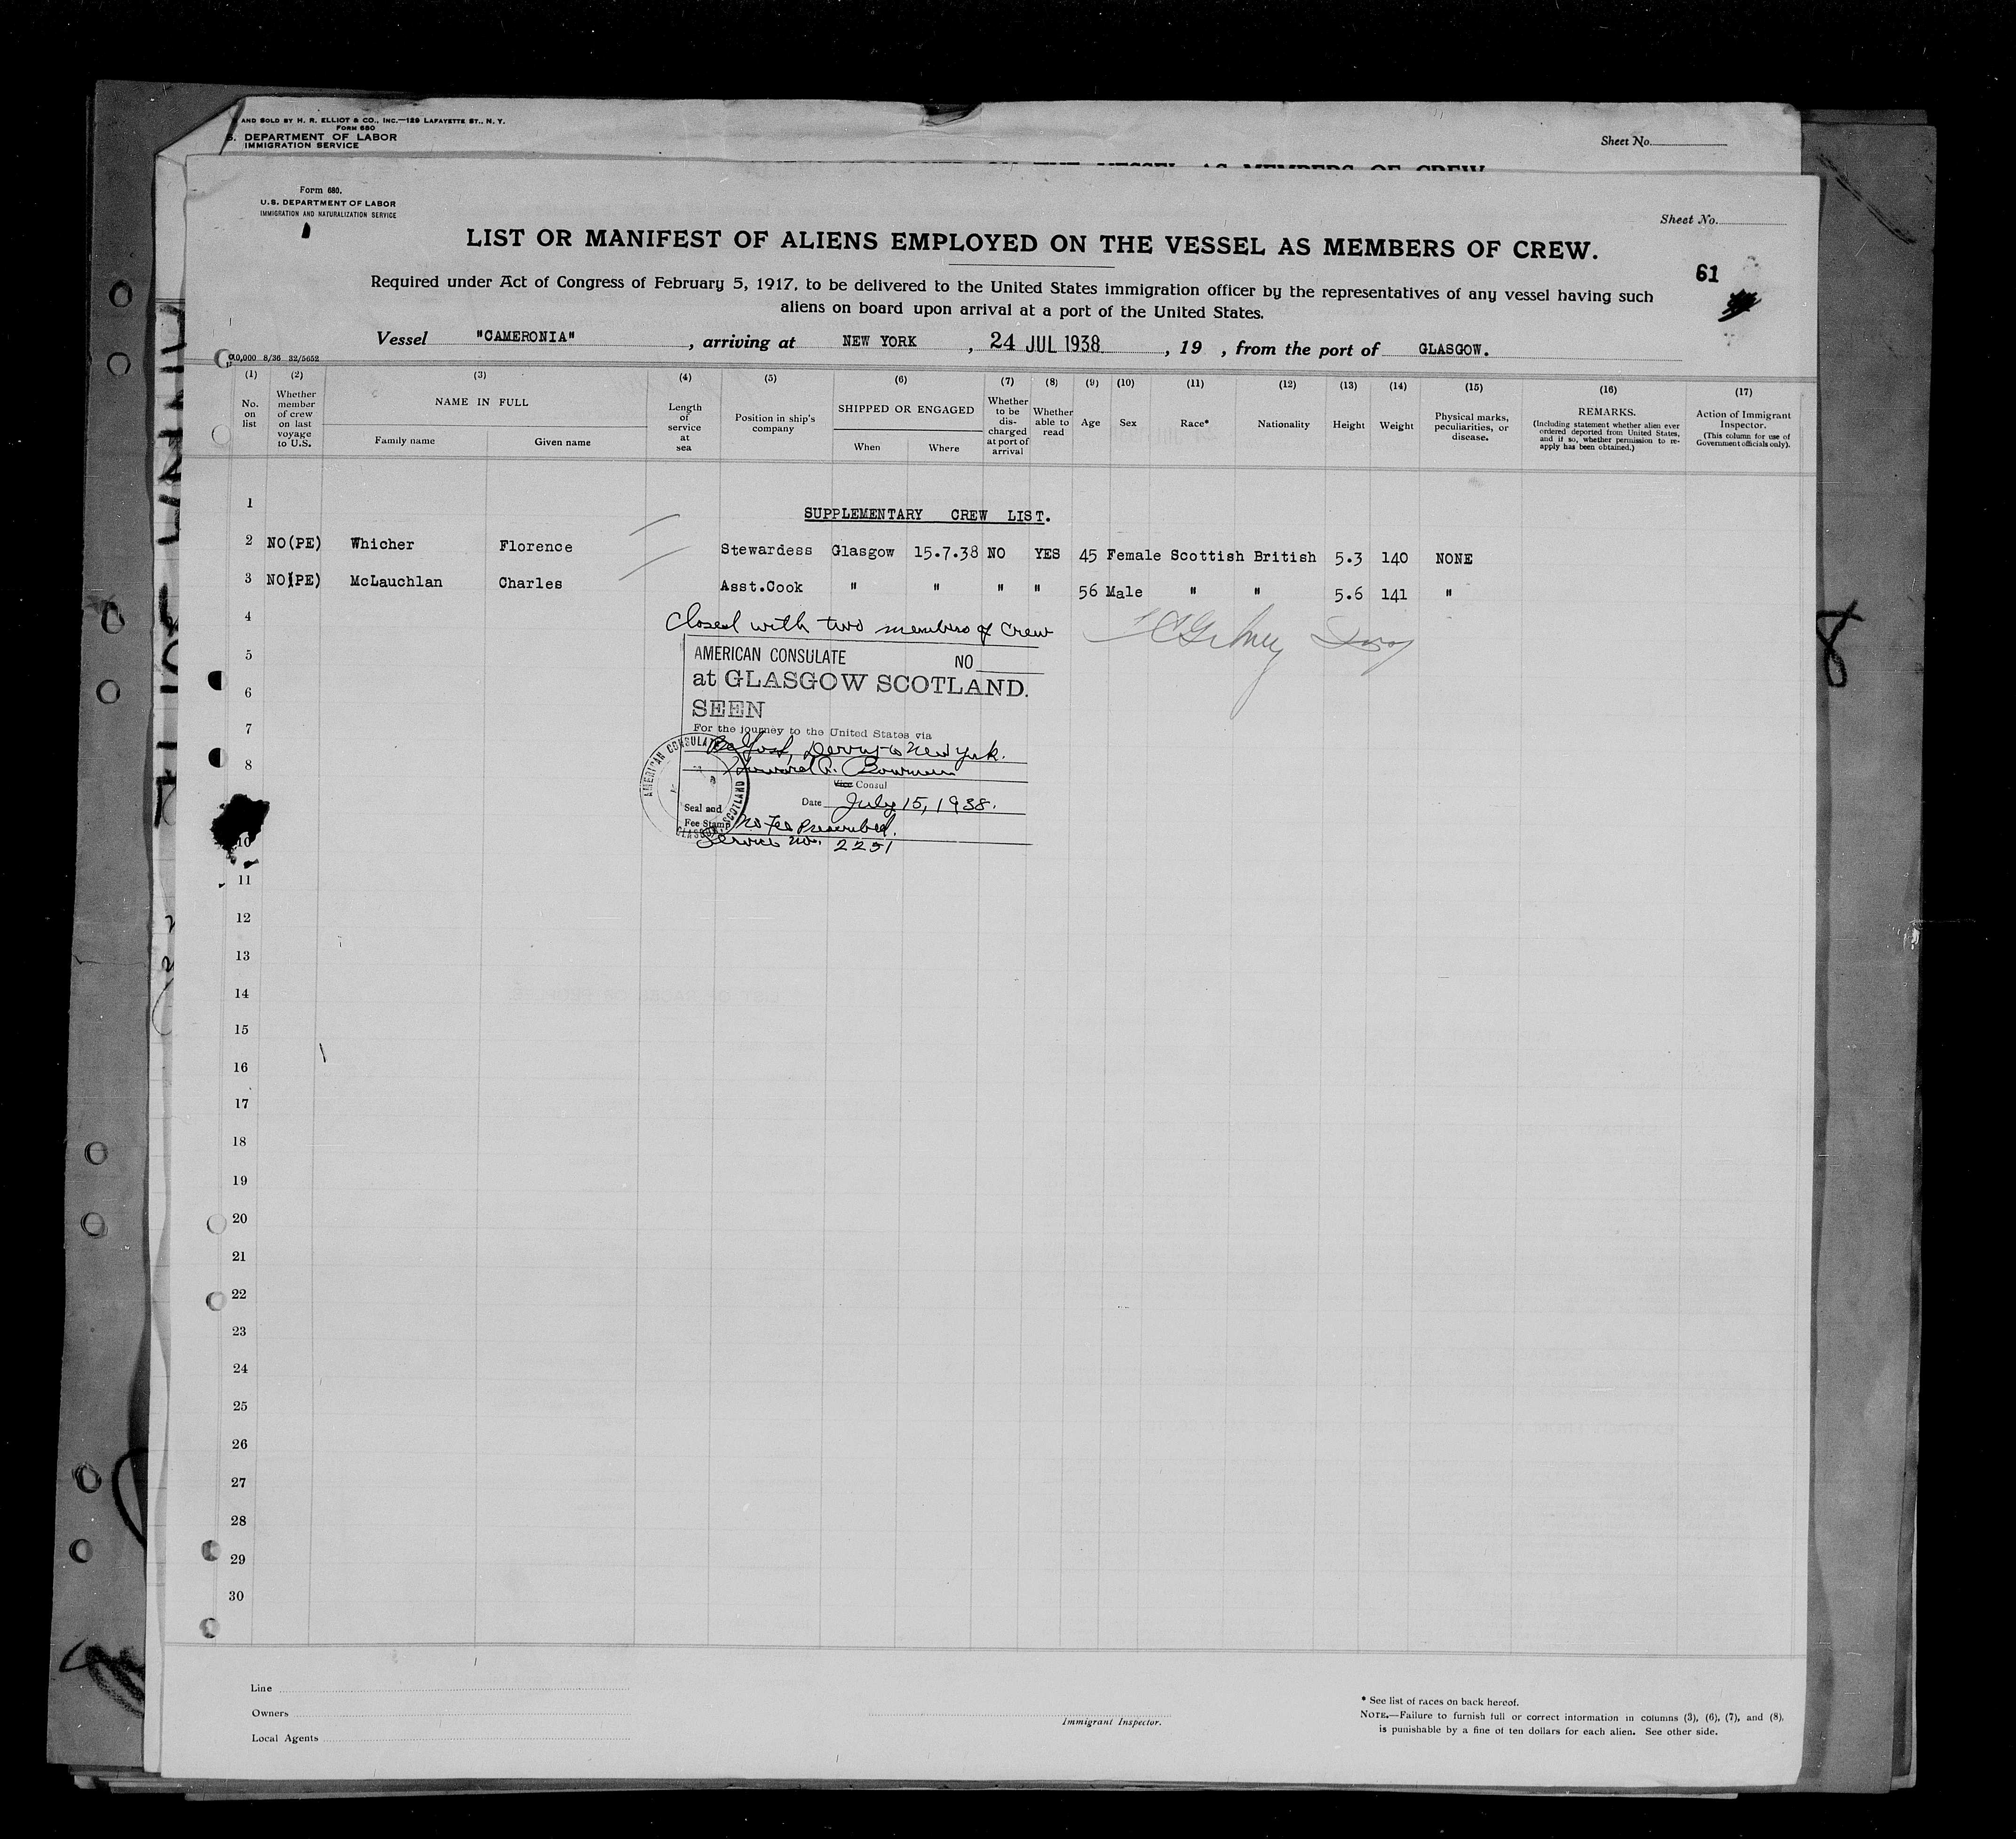 AND SOLD BY H. R. ELLIOT & CO., INC.—129 LAFAYETTE ST., N. Y.
FORM 680
S. DEPARTMENT OF LABOR
IMMIGRATION SERVICE
Sheet No.
Form 680.
U.S. DEPARTMENT OF LABOR
IMMIGRATION AND NATURALIZATION SERVICE
Sheet No.
LIST OR MANIFEST OF ALIENS EMPLOYED ON THE VESSEL AS MEMBERS OF CREW.
61
Required under Act of Congress of February 5, 1917, to be delivered to the United States immigration officer by the representatives of any vessel having such
aliens on board upon arrival at a port of the United States.
Vessel "CAMERONIA", arriving at NEW YORK, 24 JUL 1938, 19 , from the port of GLASGOW.
8/36 32/5652
(1) (2) (3) (4) (5) (6) (7) (8) (9) (10) (11) (12) (13) (14) (15) (16) (17)
No. on list
Whether member of crew on last voyage to U.S.
NAME IN FULL
Family name
Given name
Length of service at sea
Position in ship's company
SHIPPED OR ENGAGED
When
Where
Whether to be dis-charged at port of arrival
Whether able to read
Age
Sex
Race*
Nationality
Height
Weight
Physical marks, peculiarities, or disease.
REMARKS.
(Including statement whether alien ever ordered deported from United States, and if so, whether permission to re-apply has been obtained.)
Action of Immigrant Inspector.
(This column for use of Government officials only).
1
SUPPLEMENTARY CREW LIST.
2 NO(PE) Whicher Florence Stewardess Glasgow 15.7.38 NO YES 45 Female Scottish British 5.3 140 NONE
3 NO(PE) McLauchlan Charles Asst.Cook " " " " 56 Male " " 5.6 141 "
4
Closed with two members of Crew
5
AMERICAN CONSULATE NO
6
at GLASGOW SCOTLAND.
SEEN
7
For the journey to the United States via
Belfast, Derry to New York.
8
Howard A. Bowman
Vice Consul
AMERICAN CONSULATE
GLASGOW, SCOTLAND
Seal and
Fee Stamp
Date July 15, 1938.
No Fee Prescribed.
10
Service No. 2251
11
12
13
14
15
16
17
18
19
20
21
22
23
24
25
26
27
28
29
30
Line
Owners
Local Agents
Immigrant Inspector.
* See list of races on back hereof.
NOTE.—Failure to furnish full or correct information in columns (3), (6), (7), and (8),
is punishable by a fine of ten dollars for each alien. See other side.